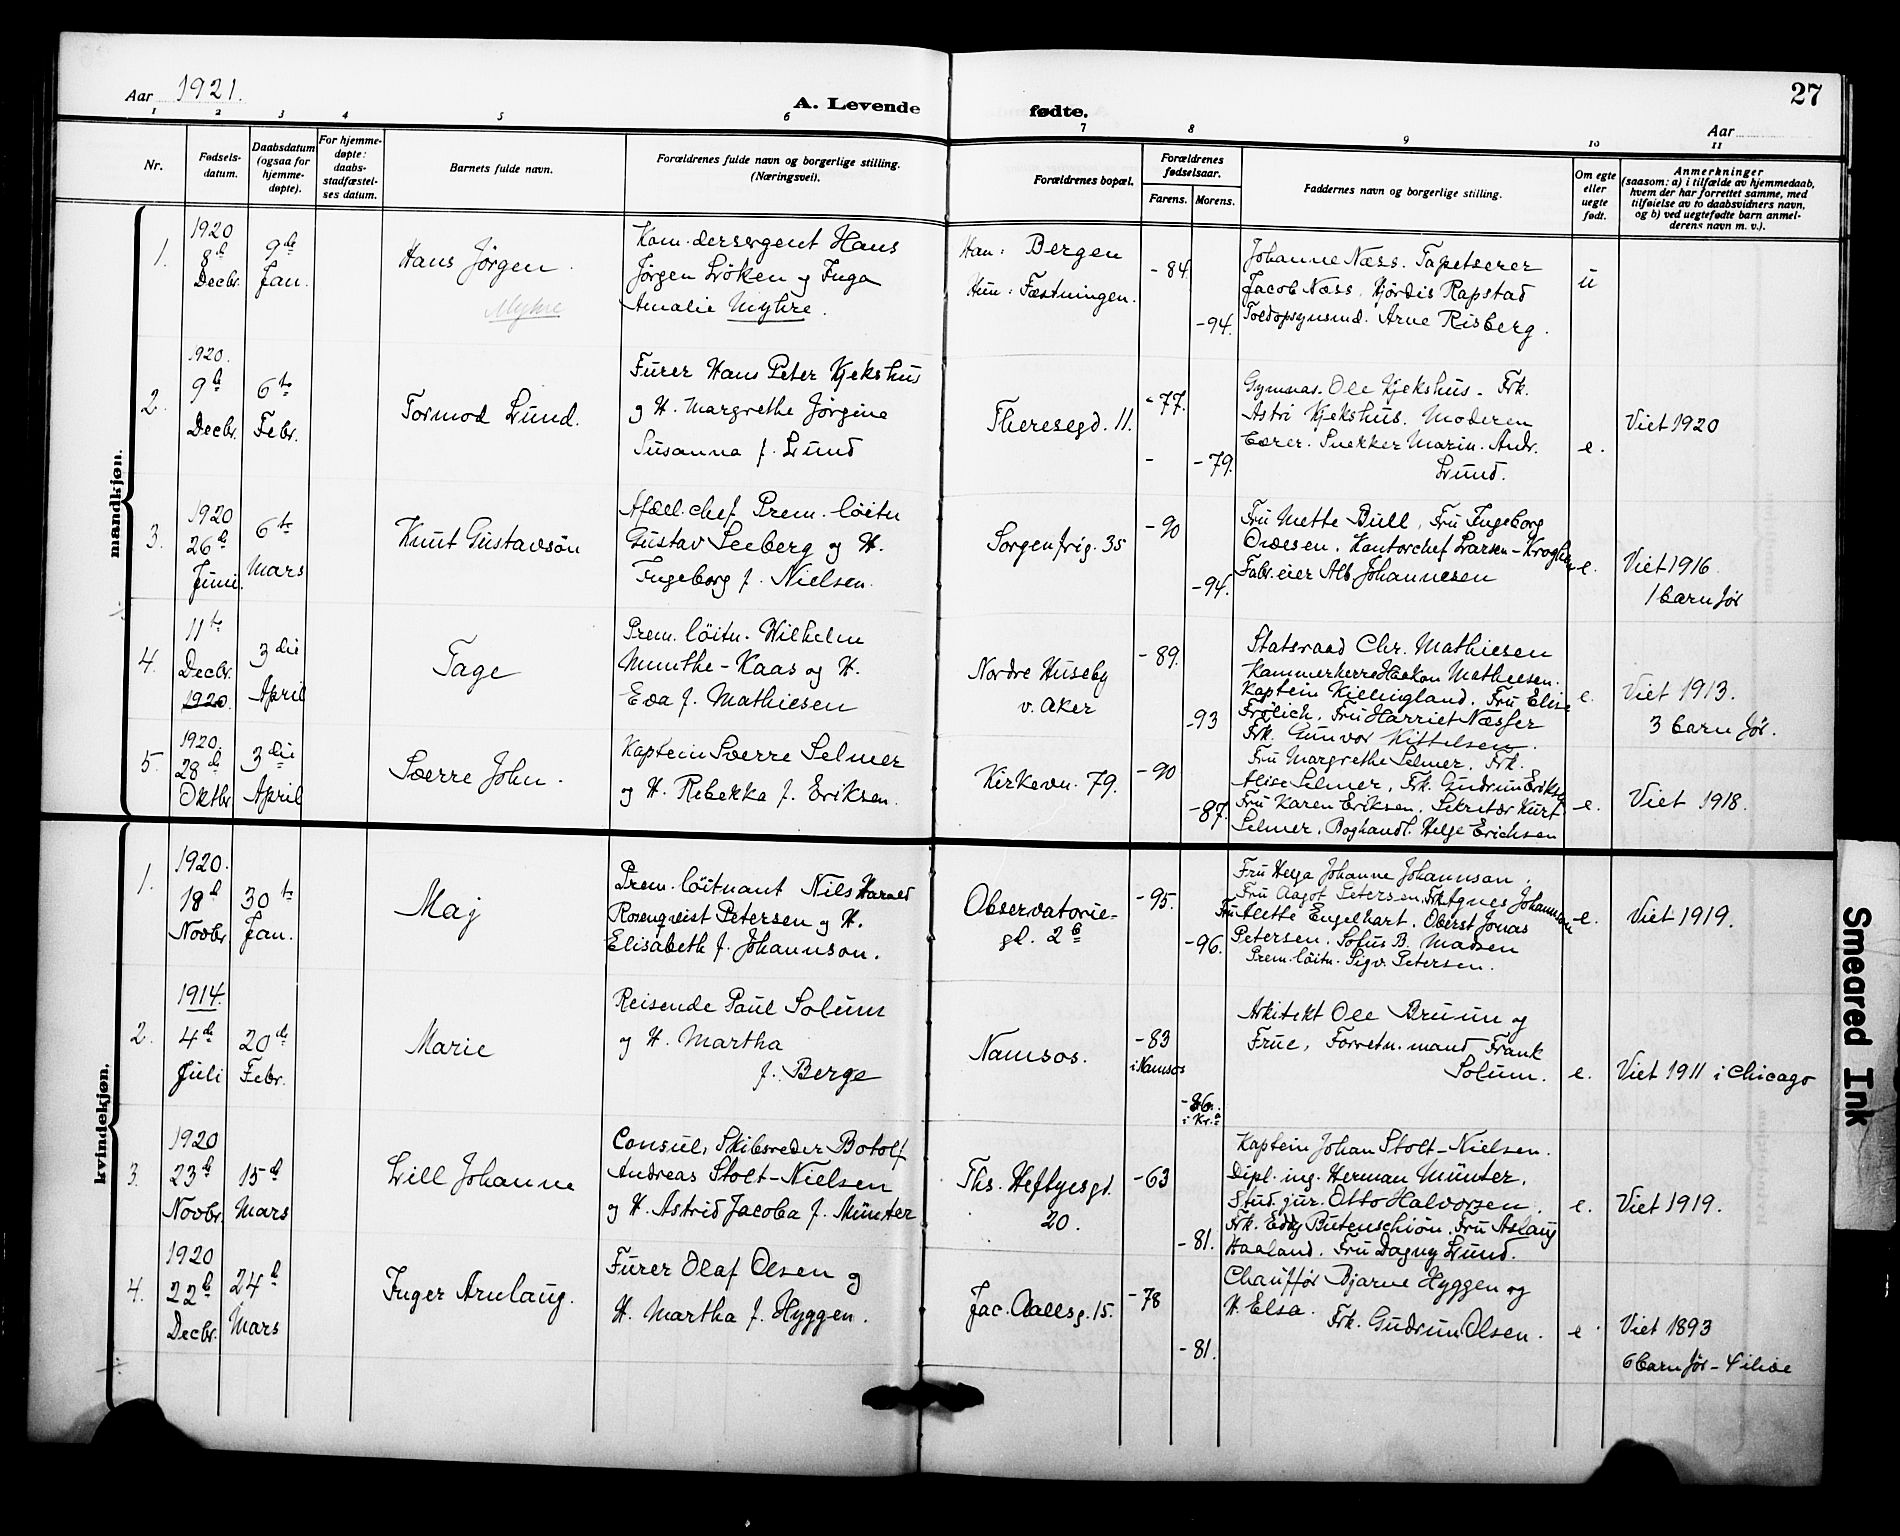 Aar 1921.
A. Levende fødte.
27
Aar
1 2 3 4 5 6 7 8 9 10 11
Nr.
Fødsels-
datum.
Daabsdatum
(ogsaa for
hjemme-
døpte).
For hjemme-
døpte:
daabs-
stadfæstel-
ses datum.
Barnets fulde navn.
Forældrenes fulde navn og borgerlige stilling.
(Næringsvei).
Forældrenes bopæl.
Forældrenes
fødselsaar.
Farens. Morens.
Faddernes navn og borgerlige stilling.
Om egte
eller
uegte
født.
Anmerkninger
(saasom: a) i tilfælde av hjemmedaab,
hvem der har forrettet samme, med
tilføielse av to daabsvidners navn,
og b) ved uegtefødte barn anmel-
derens navn m. v.).
mandkjøn.
1.
1920
8d
Decbr.
9de
Jan.
Hans Jörgen.
Myhre
Kom.dersergent Hans
Jörgen Löken og Inga
Amalie Myhre.
Han: Bergen
Hun: Fæstningen.
-84.
-94.
Johanne Næss. Tapetserer
Jacob Næss. Hjördis Rapstad
Toldopsynsmd. Arne Risberg.
u
2.
1920.
9d
Decbr.
6te
Febr.
Tormod Lund.
Furer Hans Peter Kjekshus
og H. Margrethe Jörgine
Susanna f. Lund
Theresegd. 11.
-77.
-
-79.
Gymnas. Ole Kjekshus. Frk.
Astri Kjekshus. Moderen
bærer. Snekker Marin. Andr.
Lund.
e.
Viet 1920
3.
1920
26d
Juni.
6te
Mars
Knut Gustavsön
Afdel.chef Prem.löitn
Gustav Seeberg og H.
Ingeborg f. Nielsen.
Sorgenfrig. 35
-90
-94.
Fru Mette Bull, Fru Ingeborg
Ovesen. Kontorchef Larsen-Krogh
Fabr.eier Alb Johannesen
e.
Viet 1916
1 barn før
4.
11te
Decbr.
1920.
3die
April
Tage
Prem. löitn. Wilhelm
Munthe-Kaas og H.
Eva f. Mathiesen
Nordre Huseby
v. Aker
-89.
-93
Statsraad Chr. Mathiesen
Kammerherre Haakon Mathiesen.
Kaptein Killingland. Fru Elise
Frölich. Fru Harriet Næsser
Frk. Gunvor Kittelsen.
e.
Viet 1913.
3 barn før.
5.
1920.
28d
Oktbr
3die
April
Sverre John.
Kaptein Sverre Selmer
og H. Rebekka f. Eriksen.
Kirkevn. 79.
-90
-87.
Fru Margrethe Selmer. Frk.
Alise Selmer, Frk. Gudrun Eriksen
Fru Karen Eriksen. Sekretær Kurt
Selmer. Boghandl. Helge Erichsen
e.
Viet 1918.
kvindekjøn.
1.
1920.
18d
Novbr
30te
Jan.
Maj
Prem. löitnant Nils Harald
Rosenqvist Petersen og H.
Elisabeth f. Johannson.
Observatorie-
gd. 2b
-95.
-96.
Fru Helga Johanne Johannson.
Fru Aagot Petersen. Frk Agnes Johannson
Fru Alette Engelhart. Oberst Jonas
Petersen. Sofus B. Madsen
Prem.löitn. Sigv. Petersen.
-e.
Viet 1919.
2.
1914.
4de
Juli
20de
Febr.
Marie
Reisende Paul Solum
og H. Martha
f. Berge
Namsos.
-83
i Namsos
-86.
i Kr.a
Arkitekt Ole Bruun og
Frue, Forretn.mand Frank
Solum.
e.
Viet 1911 i Chicago
3.
1920
23d
Novbr.
15d
Mars
Lill Johanne
Consul, Skibsreder Botolf
Andreas Stolt-Nielsen
og H. Astrid Jacoba f. Münster
Ths. Heftyesgd.
20.
-63
-81.
Kaptein Johan Stolt-Nielsen.
Dipl. ing. Herman Münter.
Stud. jur. Otto Halvorsen.
Frk. Eddy Butenschiön. Fru Aslaug
Haaland. Fru Dagny Lund.
e.
Viet 1919.
4.
1920
22d
Decbr.
24d
Mars
Inger Arnlaug.
Furer Olaf Olsen og
H. Martha f. Hyggen.
Jac. Aallsg. 15.
-78
-81.
Chauffør Bjarne Hyggen og
H. Elsa. Frk. Gudrun Olsen.
e
Viet 1893
6 barn før - 4 ilive
Smeared Ink